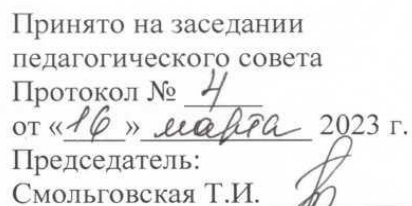 Принято на заседании
педагогического совета
Протокол № 4
от «16» марта 2023 г.
Председатель:
Смольговская Т.И.